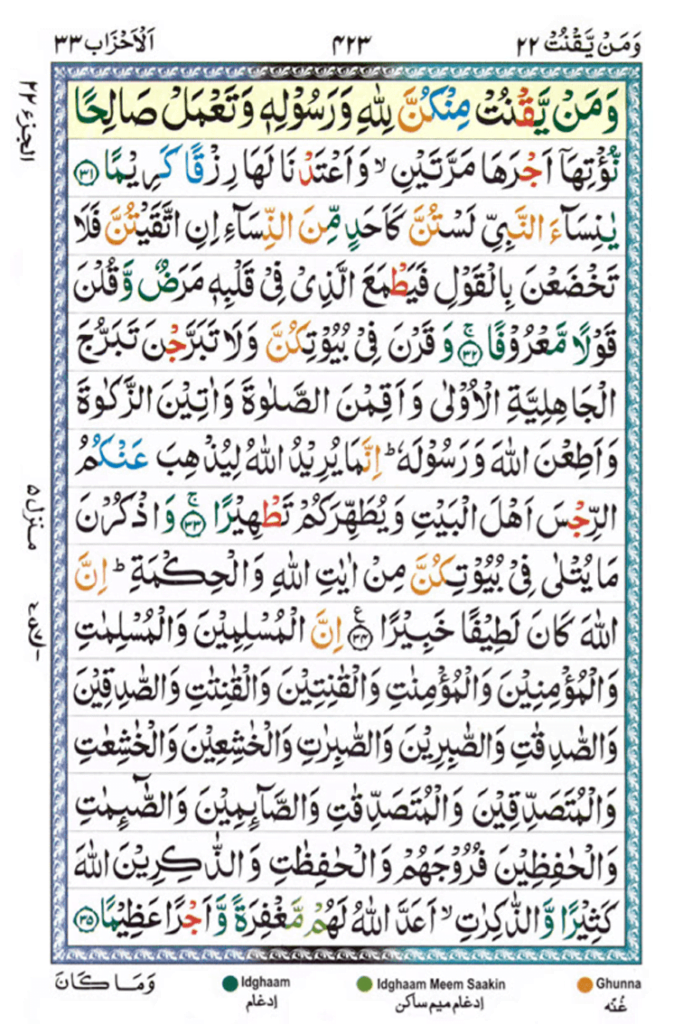 وَمَنۡ يَّقۡنُتۡ ٢٢
٤٢٣
اَلۡاَحۡزَاب ٣٣
الجزء ٢٢
وَمَنۡ يَّقۡنُتۡ مِنۡكُنَّ لِلّٰهِ وَرَسُوۡلِهٖ وَتَعۡمَلۡ صَالِحًـا
نُّؤۡتِهَـآ اَجۡرَهَا مَرَّتَيۡنِ ۙ وَاَعۡتَدۡنَا لَهَا رِزۡقًا كَرِيۡمًا ﴿۳۱﴾
يٰنِسَآءَ النَّبِىِّ لَسۡتُنَّ كَاَحَدٍ مِّنَ النِّسَآءِ اِنِ اتَّقَيۡتُنَّ فَلَا
تَخۡضَعۡنَ بِالۡقَوۡلِ فَيَطۡمَعَ الَّذِىۡ فِىۡ قَلۡبِهٖ مَرَضٌ وَّقُلۡنَ
قَوۡلًا مَّعۡرُوۡفًا ﴿۳۲﴾ۚ وَقَرۡنَ فِىۡ بُيُوۡتِكُنَّ وَلَا تَبَرَّجۡنَ تَبَرُّجَ
الۡجَاهِلِيَّةِ الۡاُوۡلٰى وَاَقِمۡنَ الصَّلٰوةَ وَاٰتِيۡنَ الزَّكٰوةَ
وَاَطِعۡنَ اللّٰهَ وَرَسُوۡلَهٗ ؕ اِنَّمَا يُرِيۡدُ اللّٰهُ لِيُذۡهِبَ عَنۡكُمُ
الرِّجۡسَ اَهۡلَ الۡبَيۡتِ وَيُطَهِّرَكُمۡ تَطۡهِيۡرًا ﴿۳۳﴾ۚ وَاذۡكُرۡنَ
مَا يُتۡلٰى فِىۡ بُيُوۡتِكُنَّ مِنۡ اٰيٰتِ اللّٰهِ وَالۡحِكۡمَةِ ؕ اِنَّ
اللّٰهَ كَانَ لَطِيۡفًا خَبِيۡرًا ﴿۳۴﴾ اِنَّ الۡمُسۡلِمِيۡنَ وَالۡمُسۡلِمٰتِ
وَالۡمُؤۡمِنِيۡنَ وَالۡمُؤۡمِنٰتِ وَالۡقٰنِتِيۡنَ وَالۡقٰنِتٰتِ وَالصّٰدِقِيۡنَ
وَالصّٰدِقٰتِ وَالصّٰبِرِيۡنَ وَالصّٰبِرٰتِ وَالۡخٰشِعِيۡنَ وَالۡخٰشِعٰتِ
وَالۡمُتَصَدِّقِيۡنَ وَالۡمُتَصَدِّقٰتِ وَالصَّآئِمِيۡنَ وَالصّٰٓئِمٰتِ
وَالۡحٰفِظِيۡنَ فُرُوۡجَهُمۡ وَالۡحٰفِظٰتِ وَالذّٰكِرِيۡنَ اللّٰهَ
كَثِيۡرًا وَّالذّٰكِرٰتِ ۙ اَعَدَّ اللّٰهُ لَهُمۡ مَّغۡفِرَةً وَّاَجۡرًا عَظِيۡمًا ﴿۳۵﴾
منزل ۵
وَمَا كَانَ
Idghaam
ادغام
Idghaam Meem Saakin
ادغام ميم ساكن
Ghunna
غُنّه